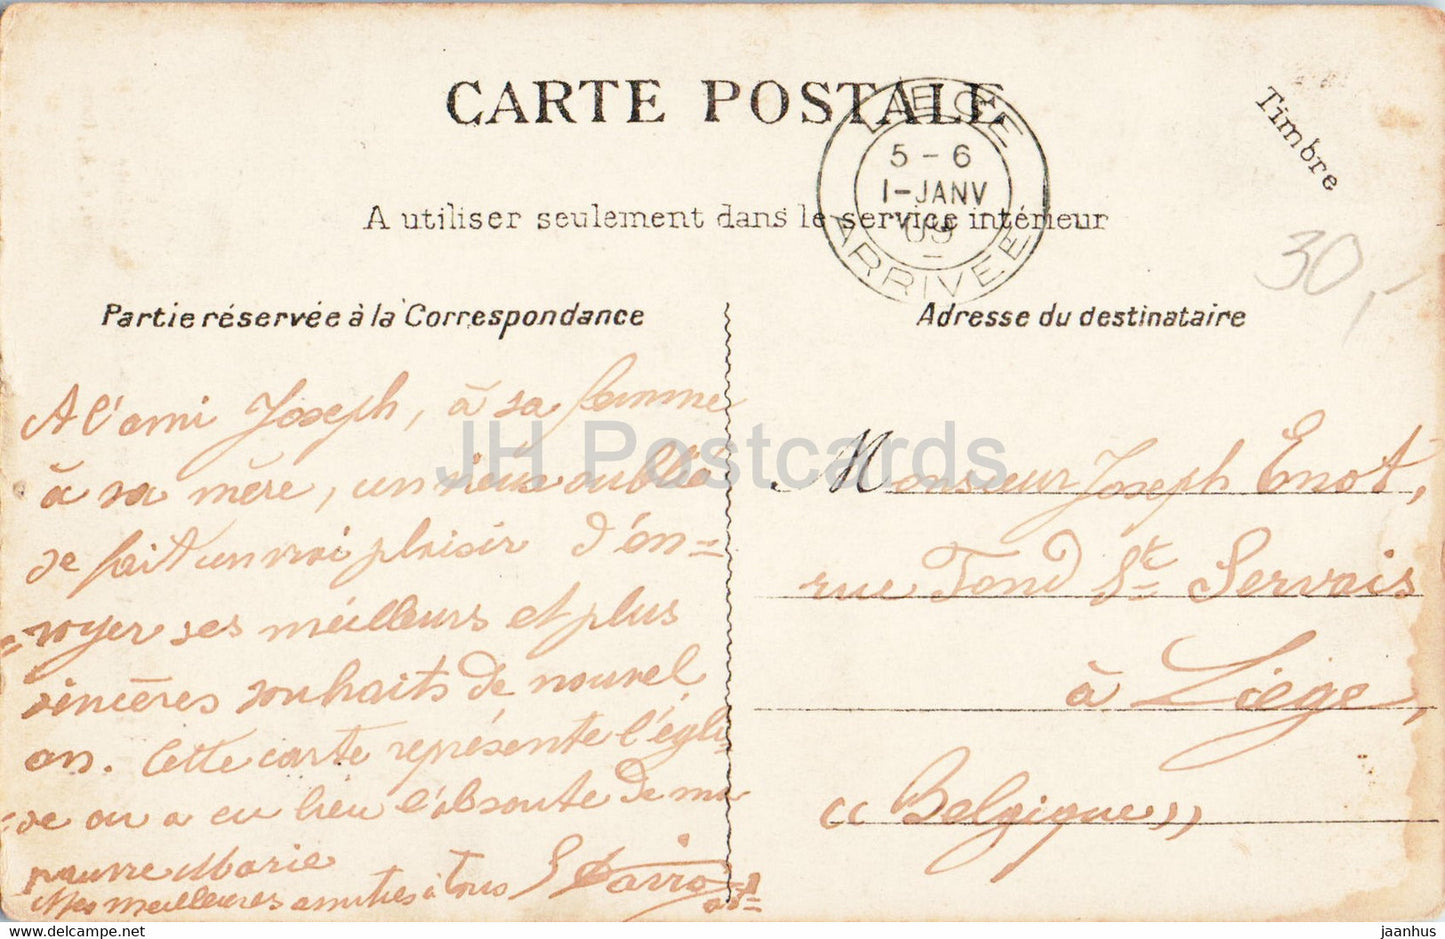 CARTE POSTALE
Timbre
LIEGE
5 - 6
1-JANV
09
ARRIVEE
A utiliser seulement dans le service intérieur
30,-
Partie réservée à la Correspondance
Adresse du destinataire
A l'ami Joseph, à sa femme
à sa mère, un vieux oublié
se fait un vrai plaisir d'en=
=voyer ses meilleurs et plus
sincères souhaits de nouvel
an. Cette carte représente l'égli
=se où a eu lieu l'absoute de ma
pauvre Marie
Mes meilleures amitiés à tous
Monsieur Joseph Enot,
rue Fond St Servais
à Liège,
"Belgique"
JH Postcards
delcampe.net
jaanhus